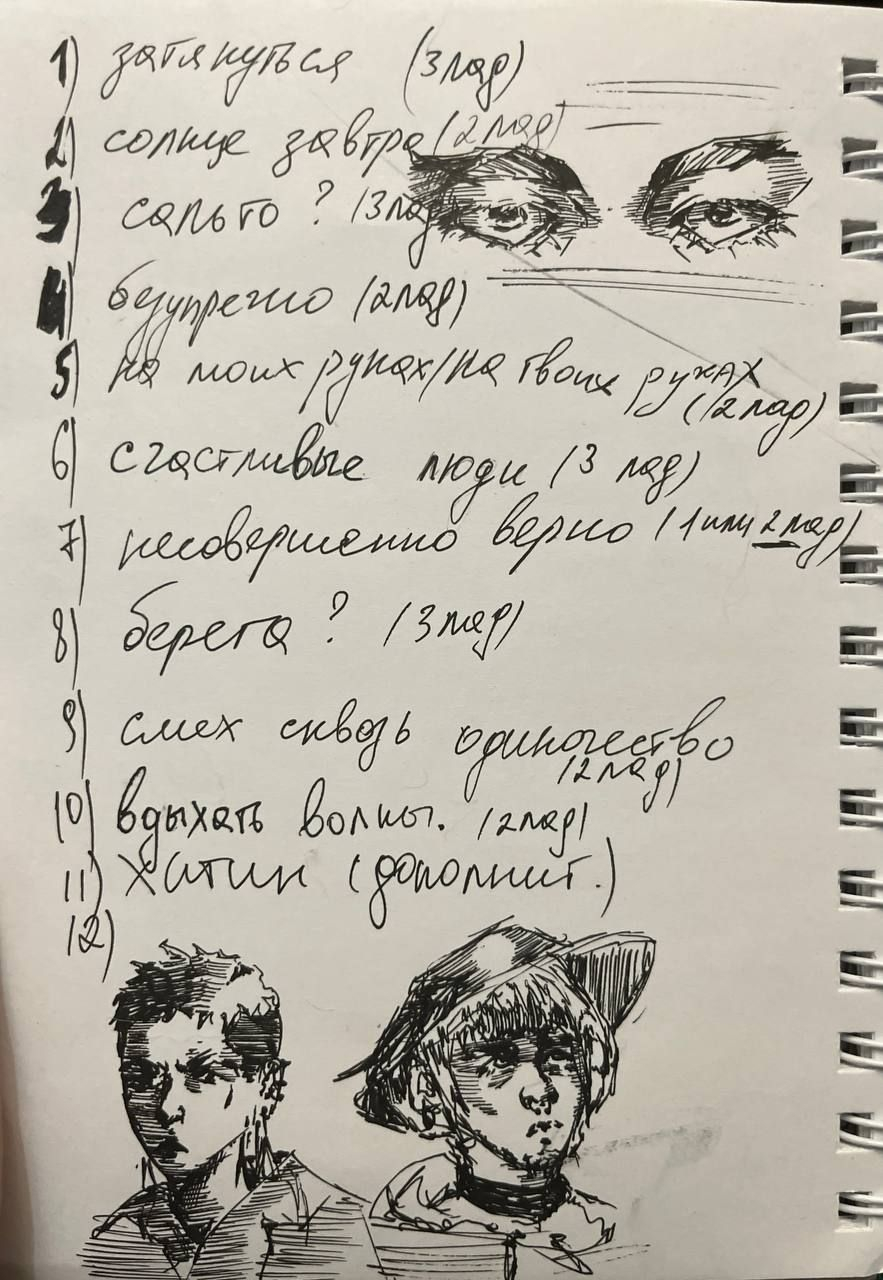 1) затянуться (3 лад)
2) солнце завтра (2 лад)
3) сальто ? (3 лад)
4) безупречно (2 лад)
5) на моих руках/на твоих руках
(2 лад)
6) счастливые люди (3 лад)
7) несовершенно верно (1 или 2 лад)
8) берега ? (3 лад)
9) смех сквозь одиночество
(2 лад)
10) вдыхать волны. (2 лад)
11) хитин (дополнит.)
12)